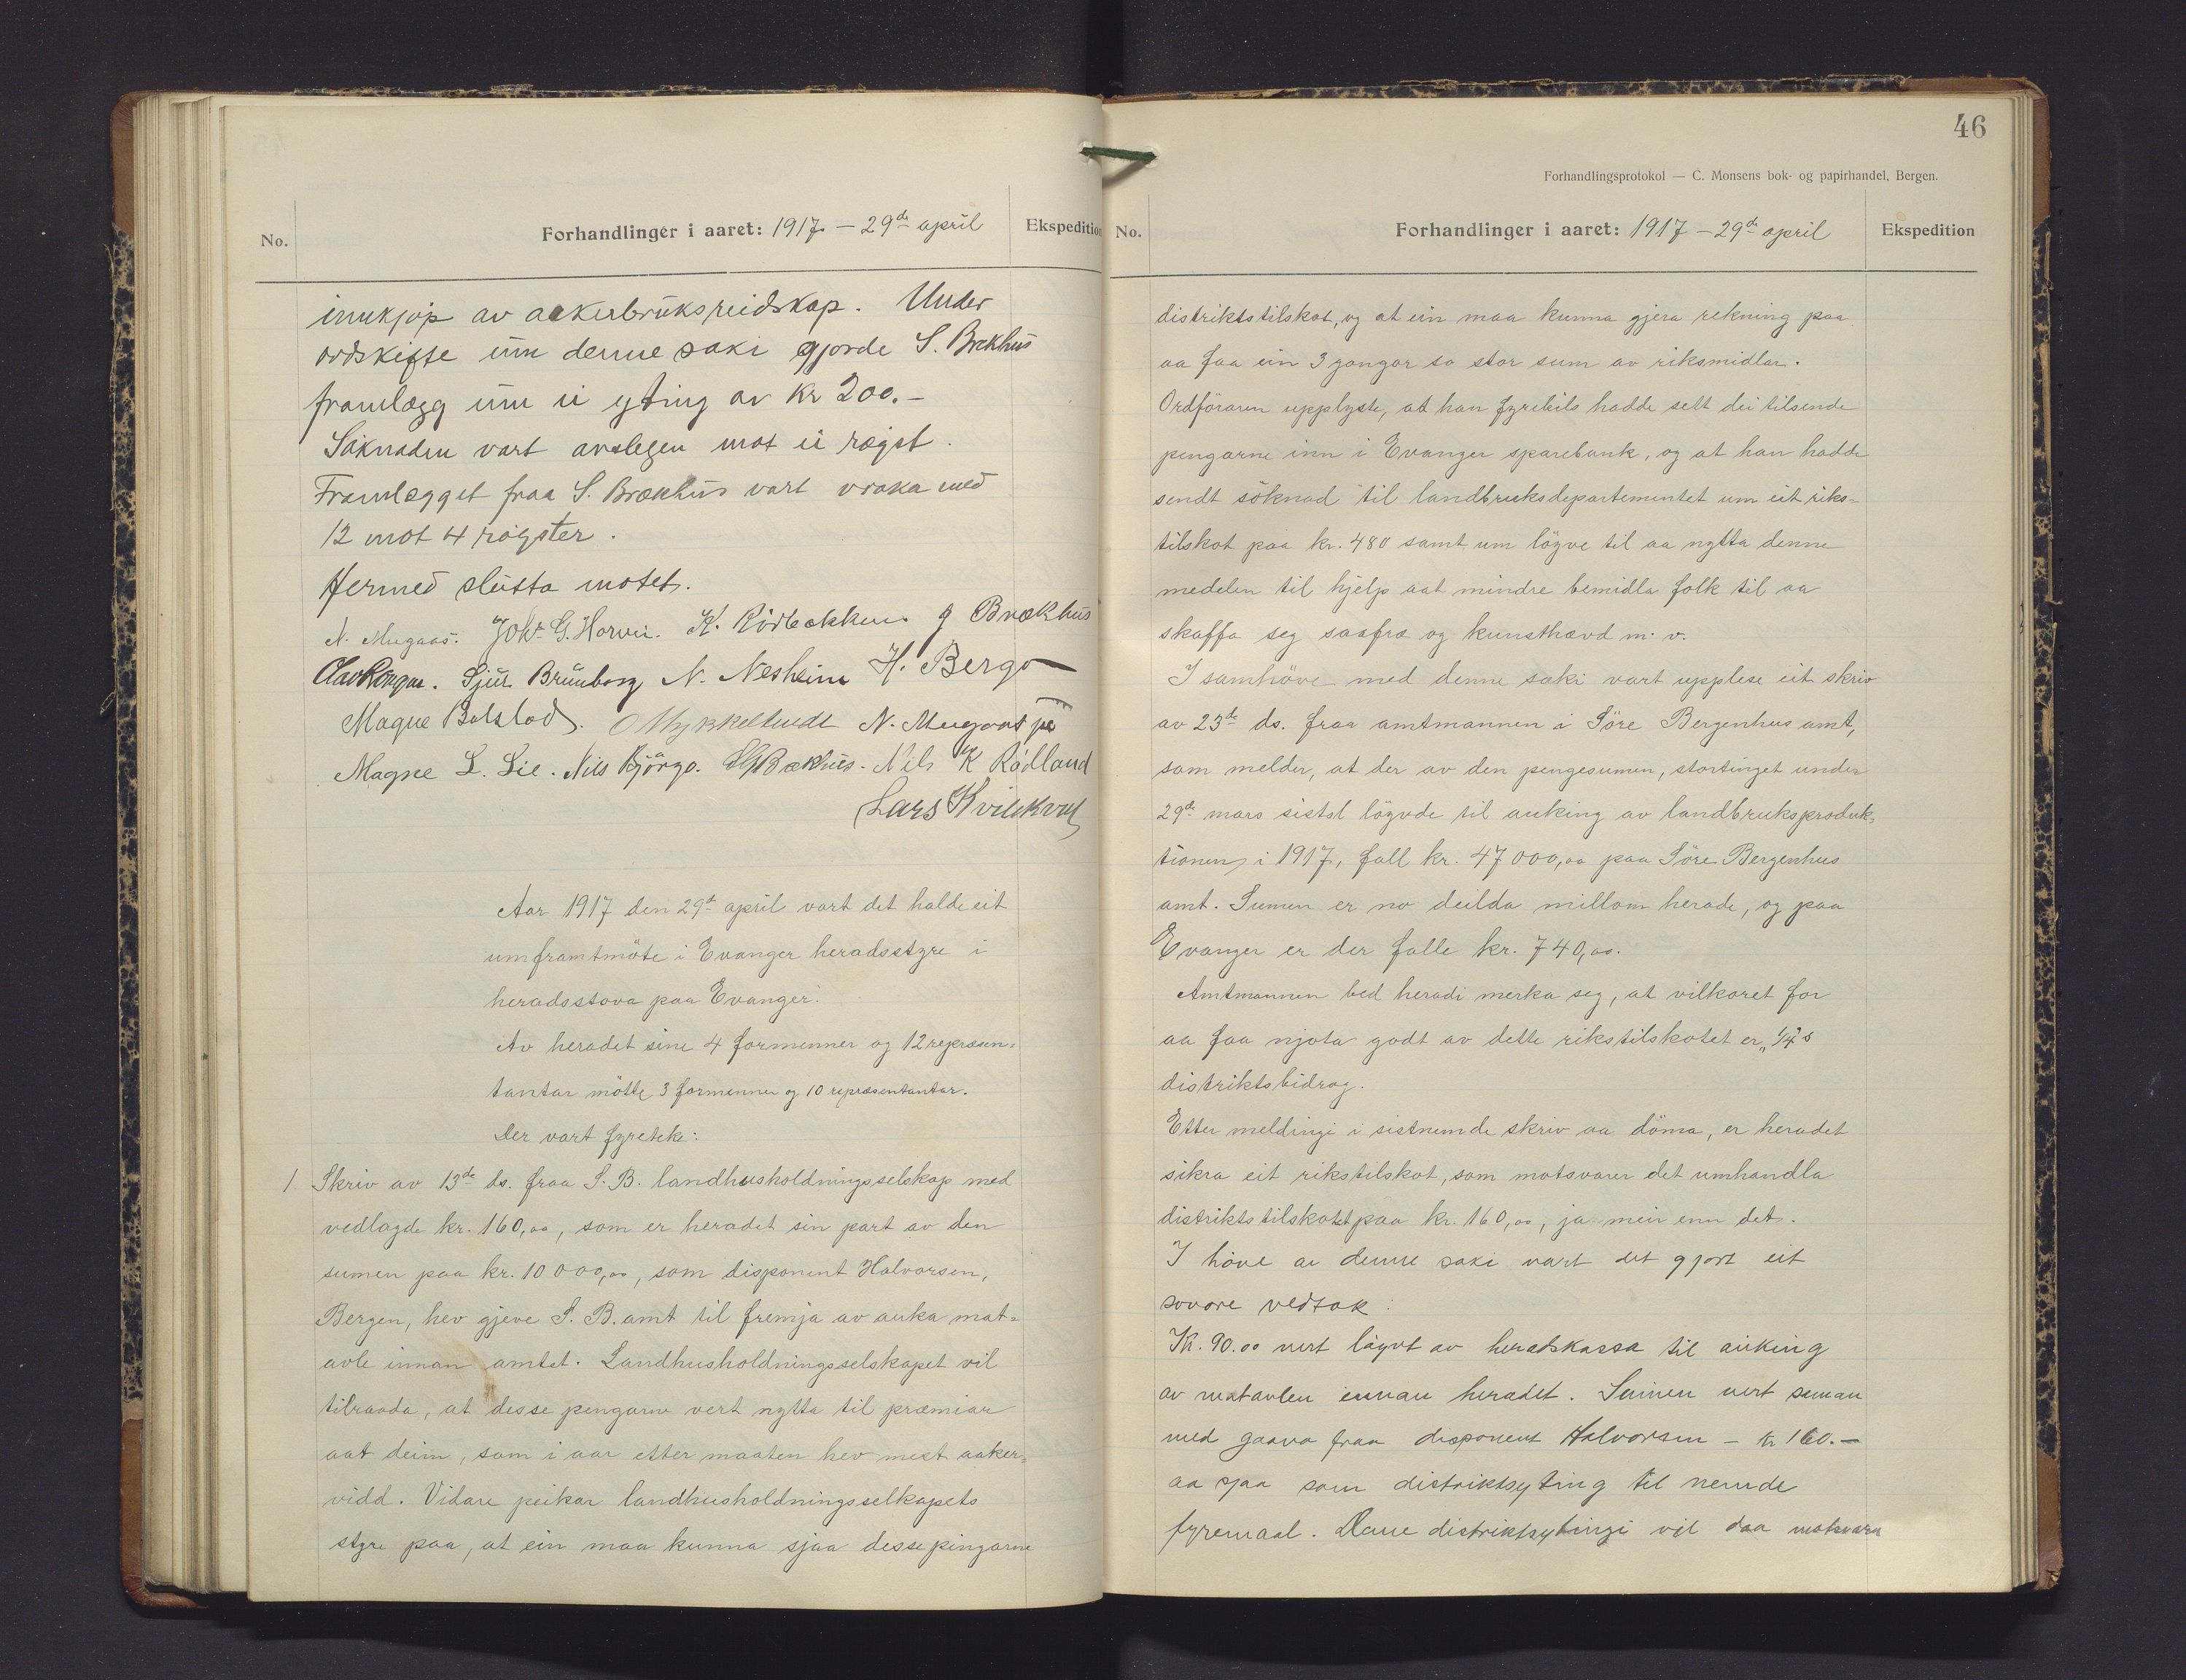 No.
Forhandlinger i aaret: 1917 — 29de april
Ekspedition
innkjøp av aakerbruksreidskap. Under
ordskifte um denne saki gjorde S. Brekhus
framlegg um ei yting av kr 200.-
Søknaden vart avslegen mot ei røyst.
Framlegget fraa S. Brækhus vart vraka med
12 mot 4 røyster.
Hermed slutta møtet.
N. Mugaas. Joh. G. Horvei. K. Rödbakken. J Brækhus
Olav Rongve. Sjur Brunborg N. Nesheim H. Bergo
Magne Bolstad. O Mykkeltvedt N. Mugaas jr
Magne L. Lie. Nils Bjørgo. Brækhus. Nils K Rødland
Lars Kvilekval
Aar 1917 den 29de april vart det halde eit
umframtmöte i Evanger heradsstyre i
heradsstova paa Evanger.
Av heradet sine 4 formenner og 12 represen=
tantar mötte 3 formenner og 10 representantar.
Der vart fyreteke:
1 Skriv av 13de ds. fraa S. B. landhusholdningsselskap med
vedlagde kr. 160,00, som er heradet sin part av den
sumen paa kr. 10 000,00, som disponent Halvorsen,
Bergen, hev gjeve S. B. amt til fremja av auka mat=
avle innan amtet. Landhusholdningsselskapet vil
tilraada, at desse pengarne vert nytta til præmiar
aat deim, som i aar etter maaten hev mest aaker=
vidd. Vidare peikar landhusholdningsselkapets
styre paa, at ein maa kunna sjaa desse pengarne
46
Forhandlingsprotokol — C. Monsens bok- og papirhandel, Bergen.
No.
Forhandlinger i aaret: 1917 — 29de april
Ekspedition
distriktstilskot, og at ein maa kunna gjera rekning paa
aa faa ein 3 gongor so stor sum av riksmidlar.
Ordföraren upplyste, at han fyrebils hadde sett dei tilsende
pengarne inn i Evanger sparebank, og at han hadde
sendt söknad til landbruksdepartementet um eit riks=
tilskot paa kr. 480 samt um löyve til aa nytta denne
medelen til hjelp aat mindre bemidla folk til aa
skaffa seg saafræ og kunsthævd m. v.
I samhöve med denne saki vart upplese eit skriv
av 23de ds. fraa amtmannen i Söre Bergenhus amt,
som melder, at der av den pengesumen, stortinget under
29de mars sistl löyvde til auking av landbruksproduk=
tionen i 1917, fall kr. 47 000,00 paa Söre Bergenhus
amt. Sumen er no deilda millom herade, og paa
Evanger er der falle kr. 740,00.
Amtmannen bed heradi merka seg, at vilkoret for
aa faa njota godt av dette rikstilskotet er „1/4's
distriktsbidrag.
Etter meldingi i sistnemde skriv aa döma, er heradet
sikra eit rikstilskot, som motsvarer det umhandla
distriktstilskotet paa kr. 160,00, ja meir enn det.
I höve av denne saki vart det gjort eit
sovore vedtak:
Kr. 90.00 vert løyvt av heradskassa til auking
av matavlen innan heradet. Sumen vert saman
med gaava fraa disponent Halvorsen - kr 160.-
aa sjaa som distriktsyting til nemnde
fyremaal. Denne distriktsytingi vil daa motsvara